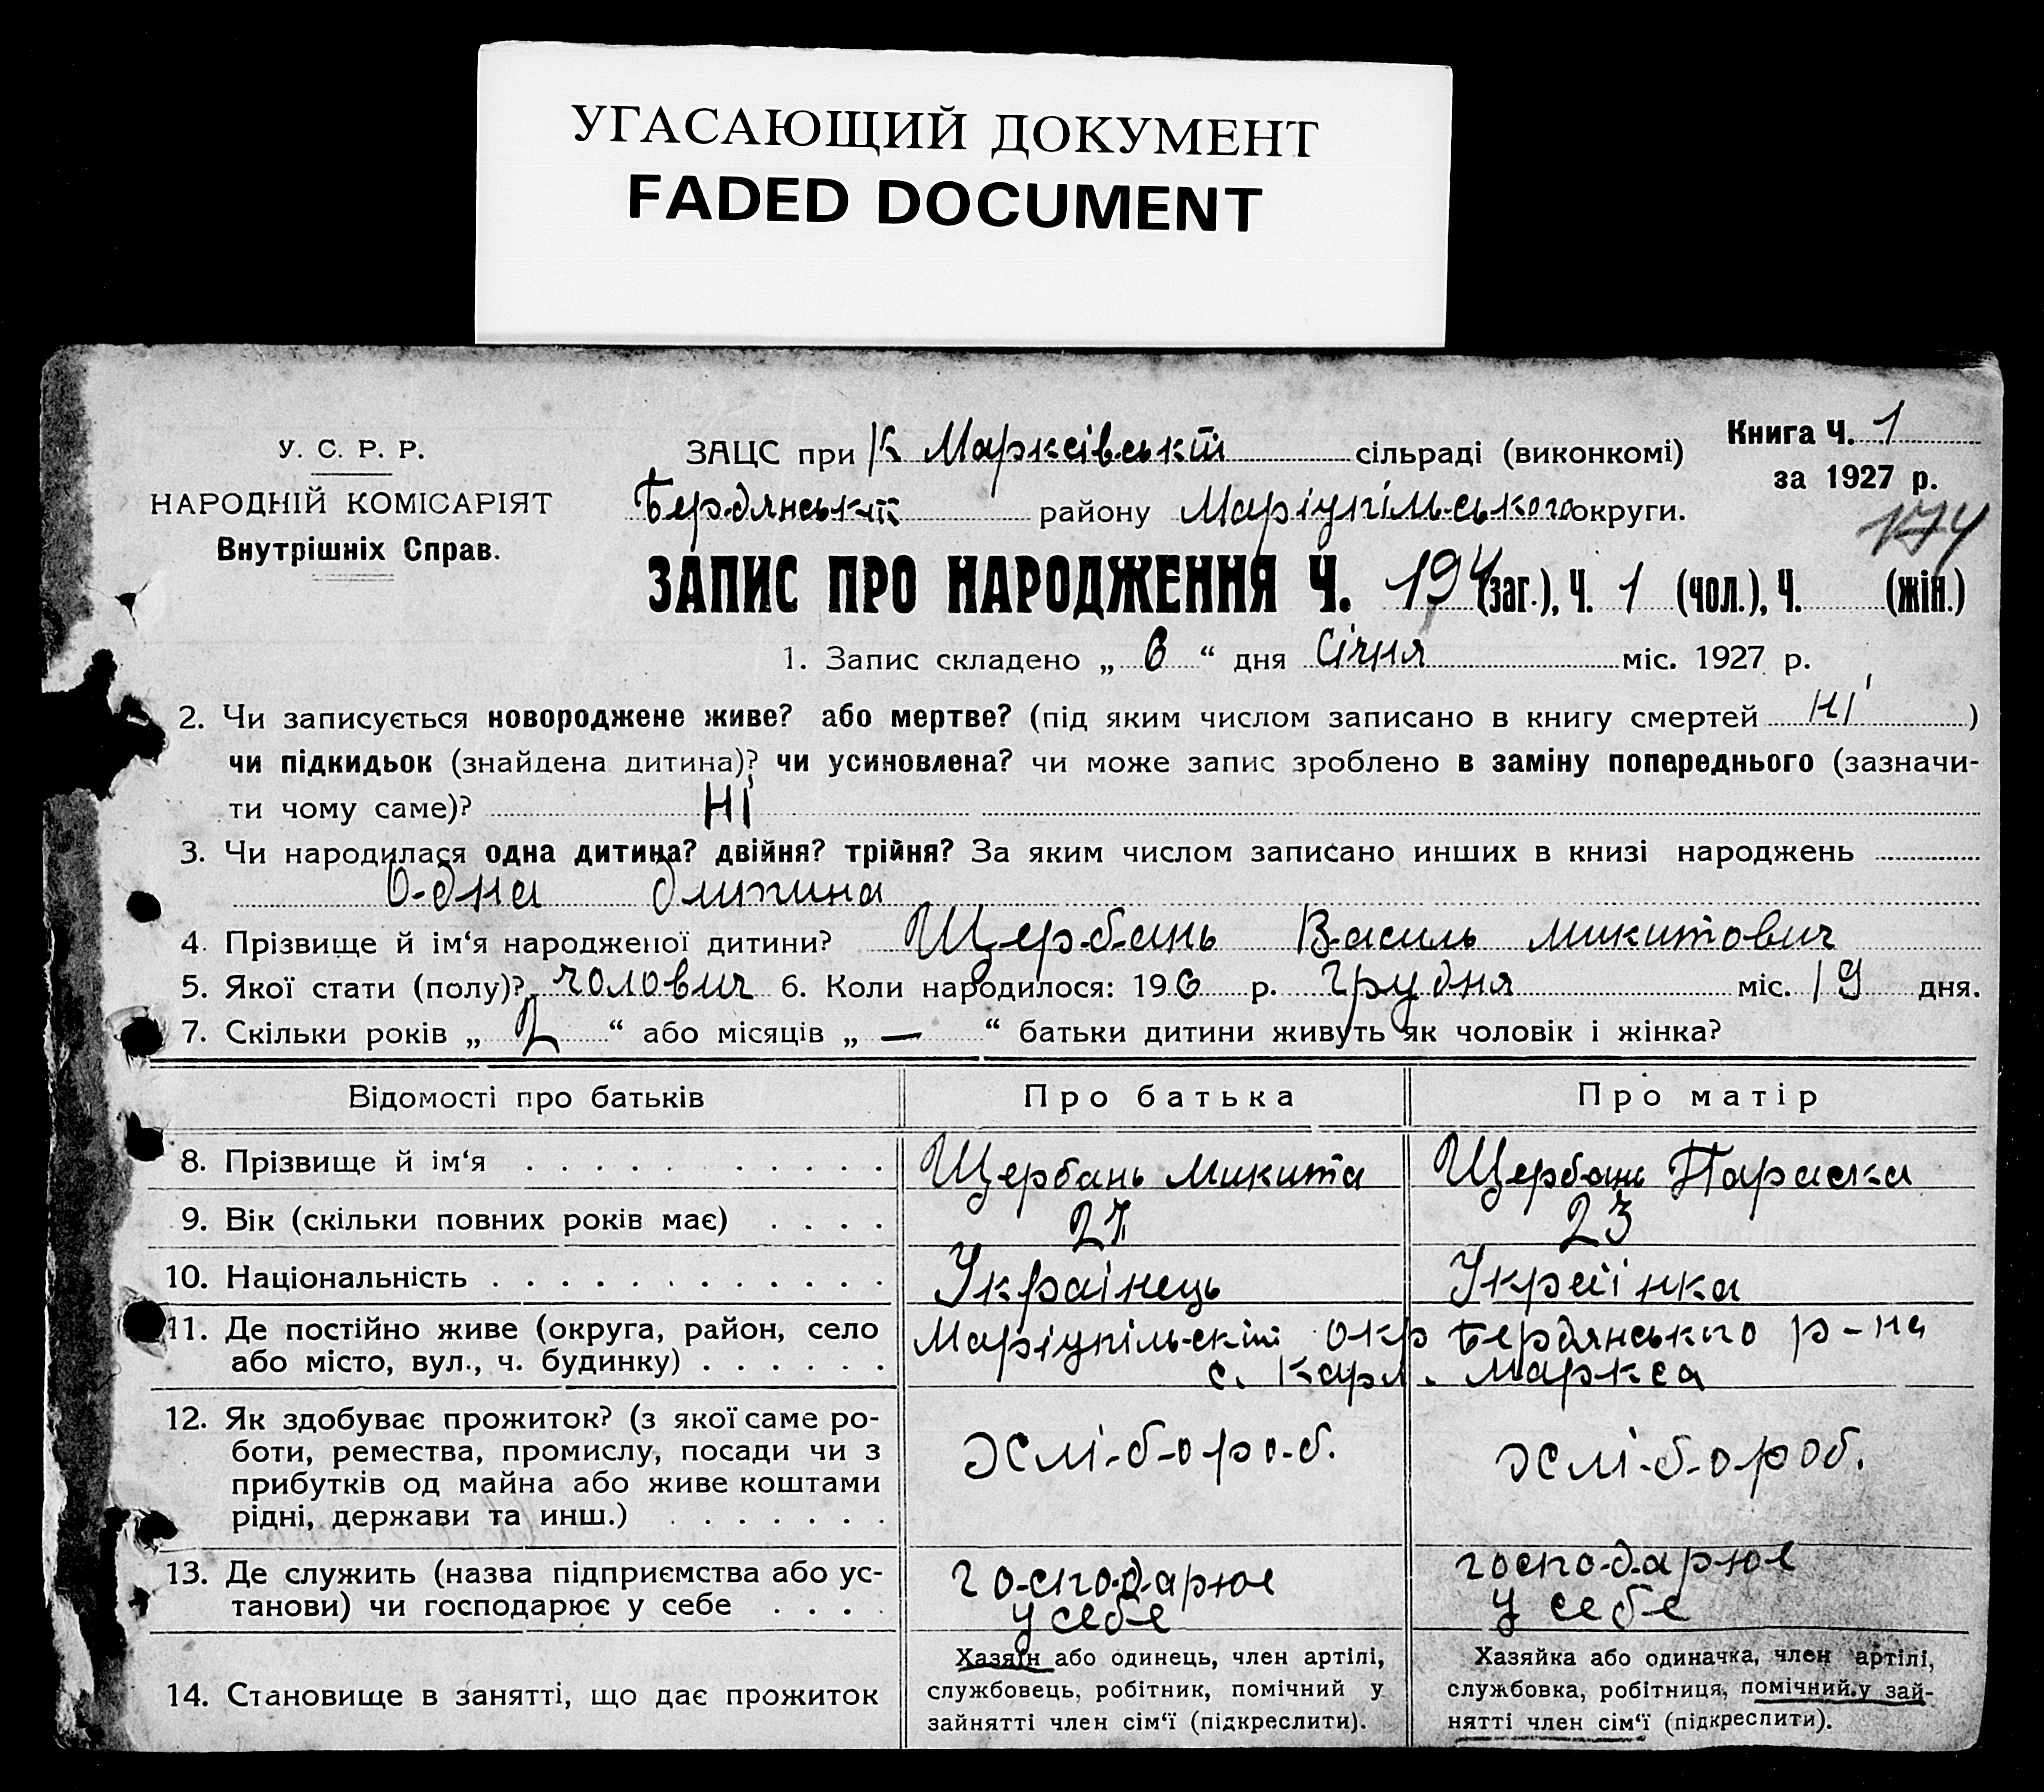 УГАСАЮЩИЙ ДОКУМЕНТ
FADED DOCUMENT
У. С. Р. Р.
НАРОДНІЙ КОМІСАРІЯТ
Внутрішніх Справ.
Книга Ч. 1
за 1927 р.
174
ЗАЦС при К Марксівській сільраді (виконкомі)
Бердянській району Маріупільського округи.
ЗАПИС ПРО НАРОДЖЕННЯ Ч. 194 (заг.), Ч. 1 (чол.), Ч. (жін.)
1. Запис складено „ 6 “ дня Січня міс. 1927 р.
2. Чи записується новороджене живе? або мертве? (під яким числом записано в книгу смертей ні )
чи підкидьок (знайдена дитина)? чи усиновлена? чи може запис зроблено в заміну попереднього (зазначи-
ти чому саме)? ні
3. Чи народилася одна дитина? двійня? трійня? За яким числом записано инших в книзі народжень
Одна дитина
4. Прізвище й ім‘я народженої дитини? Щербань Василь Микитович
5. Якої стати (полу)? чолович 6. Коли народилося: 19 6 р. грудня міс. 19 дня.
7. Скільки років „ 2 “ або місяців „ — “ батьки дитини живуть як чоловік і жінка?
Відомості про батьків Про батька Про матір
8. Прізвище й ім‘я Щербань Микита Щербань Параска
9. Вік (скільки повних років має) 27 23
10. Національність Українець Українка
11. Де постійно живе (округа, район, село
або місто, вул., ч. будинку)
Маріупільскій окр Бердянського р-на
с. Карл. Маркса
12. Як здобуває прожиток? (з якої саме ро-
боти, ремества, промислу, посади чи з
прибутків од майна або живе коштами
рідні, держави та инш.)
хлі-б-оро-б. хлі-б-ороб.
13. Де служить (назва підприємства або ус-
танови) чи господарює у себе
господарює
у себе
господарює
у себе
14. Становище в занятті, що дає прожиток
Хазяїн або одинець, член артілі,
службовець, робітник, помічний у
зайнятті член сім‘ї (підкреслити).
Хазяйка або одиначка, член артілі,
службовка, робітниця, помічний у зай-
нятті член сім‘ї (підкреслити).